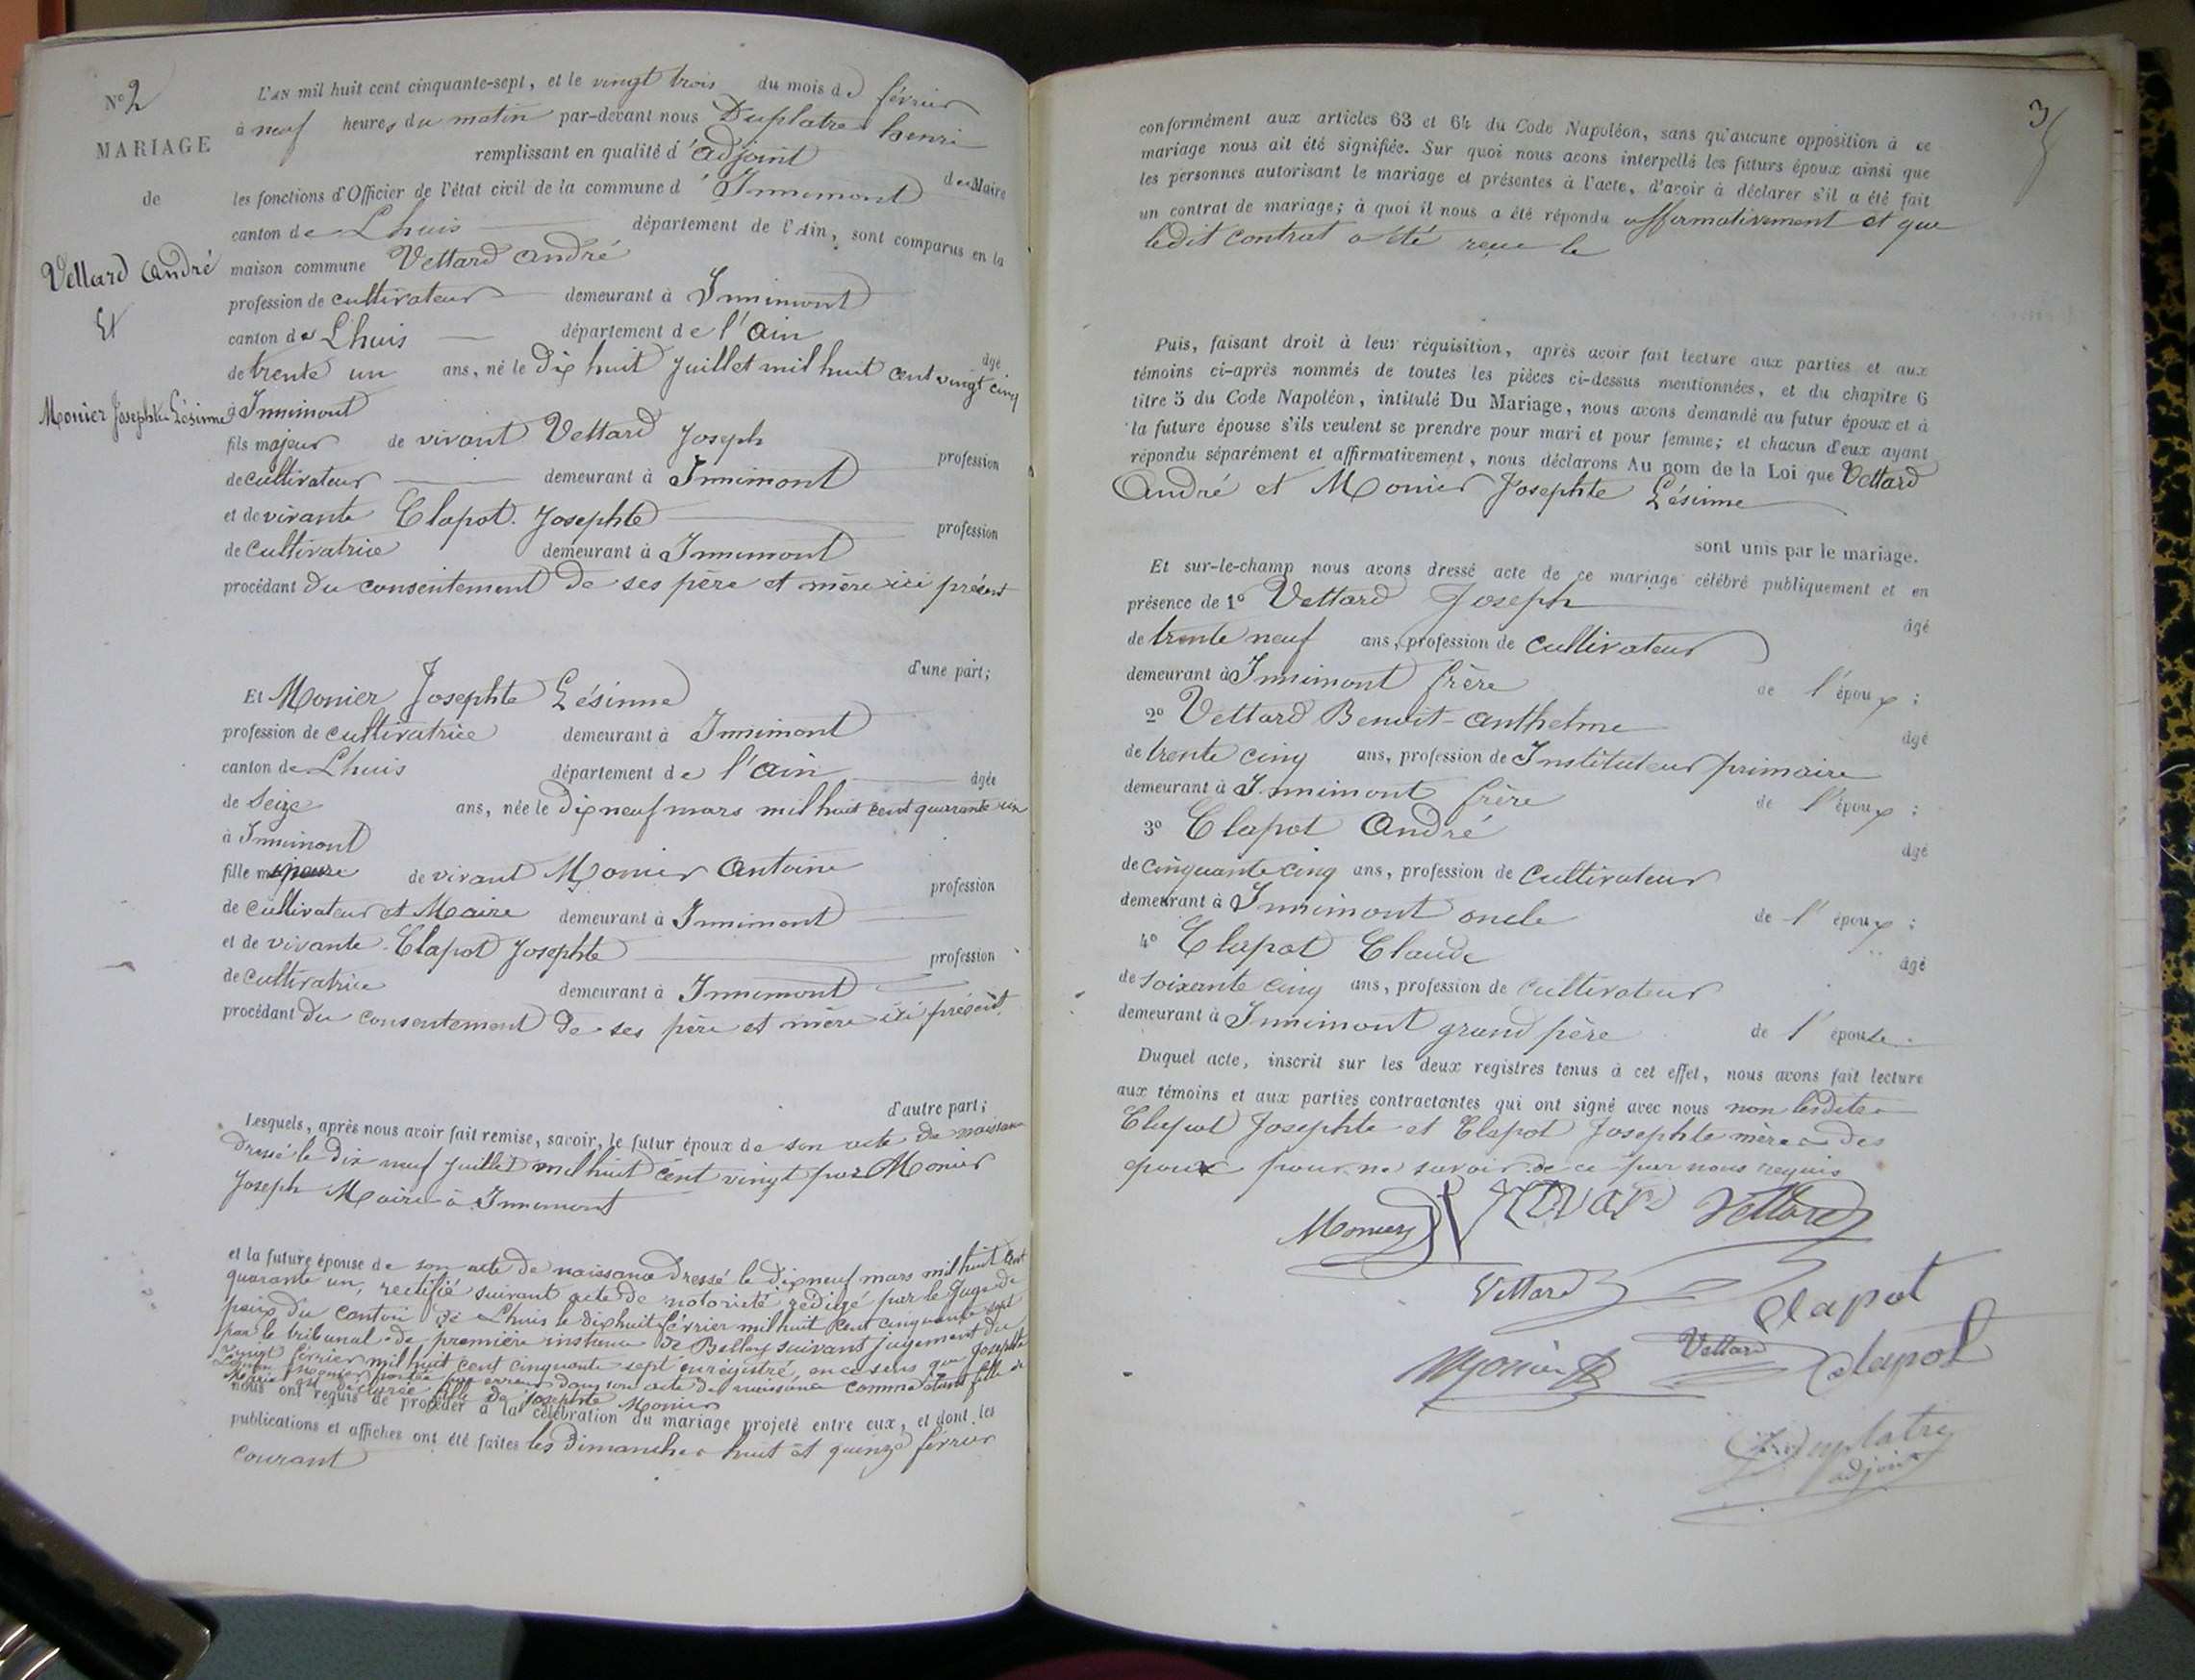 N° 2
MARIAGE
de
Vettard André
Et
Monier Josephte Lésinne
L'AN mil huit cent cinquante-sept, et le vingt trois du mois de février
à neuf heures du matin par-devant nous Duplatre henri
remplissant en qualité d'adjoint du Maire
les fonctions d'Officier de l'état civil de la commune d'Innimont
canton de Lhuis département de l'Ain, sont comparus en la
maison commune Vettard André
profession de cultivateur demeurant à Innimont
canton de Lhuis département de l'Ain âgé
de trente un ans, né le dix huit Juillet mil huit cent vingt cinq
à Innimont
fils majeur de vivant Vettard Joseph profession
de cultivateur demeurant à Innimont
et de vivante Clapot Josephte profession
de cultivatrice demeurant à Innimont
procédant du consentement de ses père et mère ici présent
d'une part;
Et Monier Josephte Lésinne
profession de cultivatrice demeurant à Innimont
canton de Lhuis département de l'Ain âgée
de seize ans, née le dix neuf mars mil huit cent quarante un
à Innimont
fille mineure de vivant Monier Antoine profession
de cultivateur et Maire demeurant à Innimont
et de vivante Clapot Josephte profession
de cultivatrice demeurant à Innimont
procédant du consentement de ses père et mère ici présent
d'autre part;
Lesquels, après nous avoir fait remise, savoir, le futur époux de son acte de naissance
dressé le dix neuf Juillet mil huit cent vingt par Monier
Joseph Maire à Innimont
et la future épouse de son acte de naissance dressé le dix neuf mars mil huit cent
quarante un, rectifié suivant acte de notoriété rédigé par le Juge de
paix du canton de Lhuis le dix huit février mil huit cent cinquante sept
par le tribunal de première instance de Belley suivant jugement du
vingt février mil huit cent cinquante sept enregistré, en ce sens que Josephte
Lésinne Monier portée par erreur dans son acte de naissance comme étant fille de
Marie déclarée fille de Josephte Monier
nous ont requis de procéder à la célébration du mariage projeté entre eux, et dont les
publications et affiches ont été faites les dimanches huit et quinze février
courant
3
conformément aux articles 63 et 64 du Code Napoléon, sans qu'aucune opposition à ce
mariage nous ait été signifiée. Sur quoi nous avons interpellé les futurs époux ainsi que
les personnes autorisant le mariage et présentes à l'acte, d'avoir à déclarer s'il a été fait
un contrat de mariage; à quoi il nous a été répondu affirmativement et que
ledit contrat a été reçue le
Puis, faisant droit à leur réquisition, après avoir fait lecture aux parties et aux
témoins ci-après nommés de toutes les pièces ci-dessus mentionnées, et du chapitre 6
titre 5 du Code Napoléon, intitulé Du Mariage, nous avons demandé au futur époux et à
la future épouse s'ils veulent se prendre pour mari et pour femme; et chacun d'eux ayant
répondu séparément et affirmativement, nous déclarons Au nom de la Loi que Vettard
André et Monier Josephte Lésinne
sont unis par le mariage.
Et sur-le-champ nous avons dressé acte de ce mariage célébré publiquement et en
présence de 1° Vettard Joseph âgé
de trente neuf ans, profession de cultivateur
demeurant à Innimont frère de l'époux;
2° Vettard Benoit-Anthelme âgé
de trente cinq ans, profession de Instituteur primaire
demeurant à Innimont frère de l'époux;
3° Clapot André âgé
de cinquante cinq ans, profession de cultivateur
demeurant à Innimont oncle de l'époux;
4° Clapot Claude âgé
de soixante cinq ans, profession de cultivateur
demeurant à Innimont grand père de l'épouse.
Duquel acte, inscrit sur les deux registres tenus à cet effet, nous avons fait lecture
aux témoins et aux parties contractantes qui ont signé avec nous non lesdites
Clapot Josephte et Clapot Josephte mères des
époux pour ne savoir de ce par nous requis
Monier Vettard
Vettard Clapot
Monier Vettard Clapot
Duplatre
adjoint